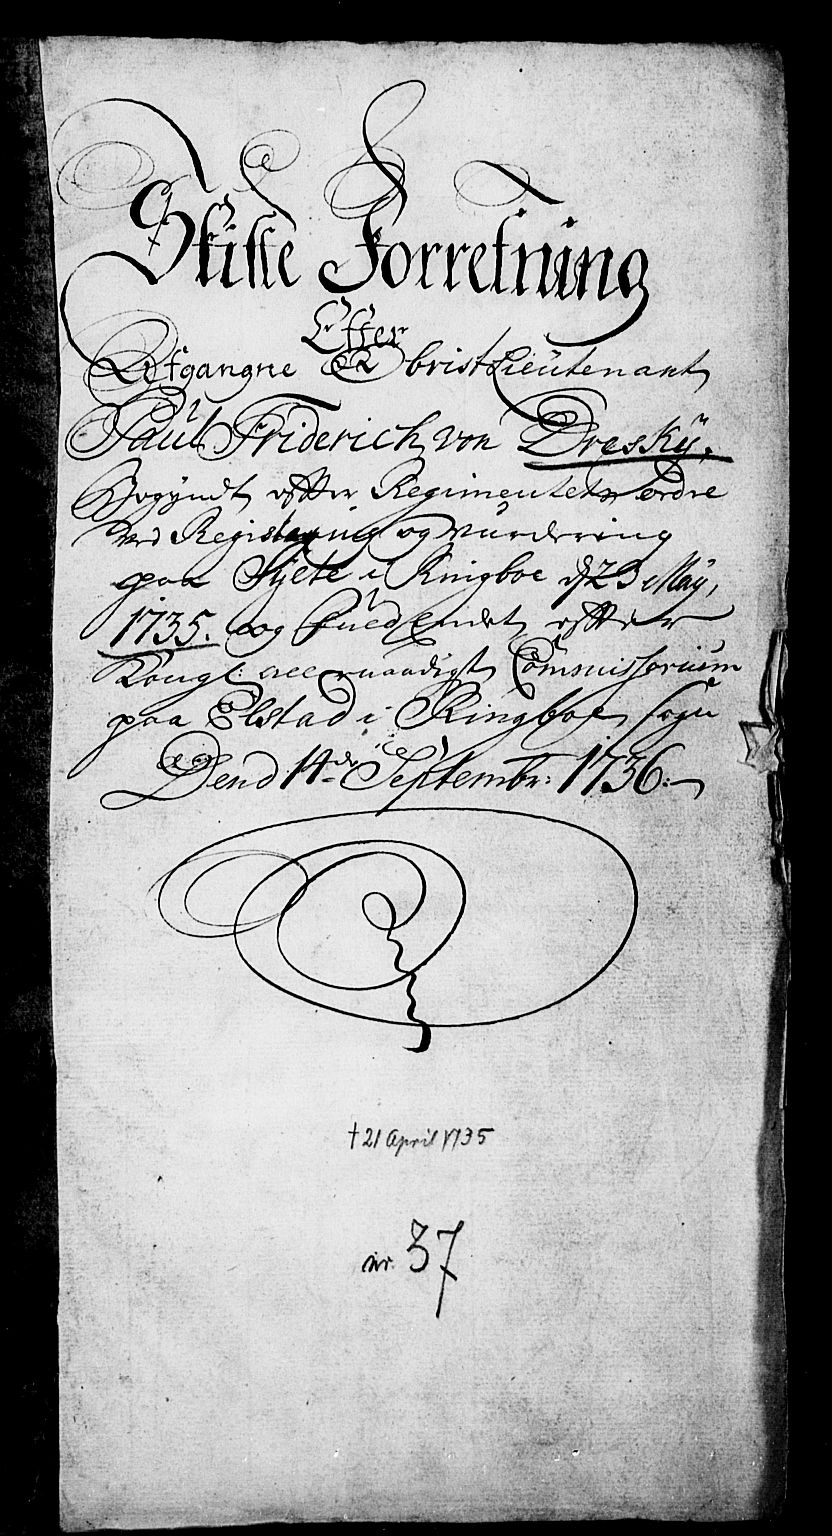 Skifte Forretning
Efter
Afgangne ObristLieutenant
Paul Friderich von Dresky,
Begyndt efter Regimentets ordre
ved Registering og Wurdering
paa Stjele i Ringboe d 23 May,
1735. og fuldendet efter
Kongl: allernaadigst Commissorium
paa Elstad i Ringboe Sogn
Dend 14de Septembr: 1736.
† 21 April 1735
nr. 37